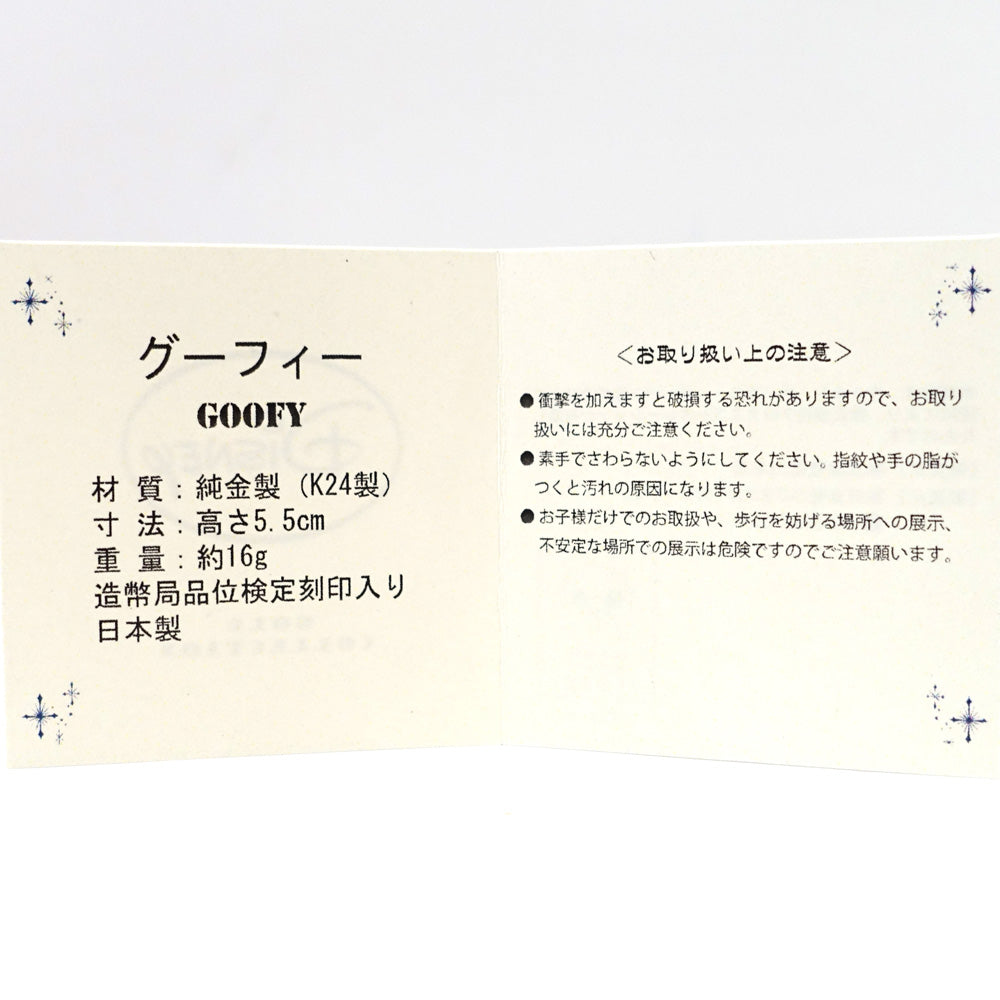 グーフィー
GOOFY
材 質：純金製 (K24製)
寸 法：高さ5.5cm
重 量：約16g
造幣局品位検定刻印入り
日本製
＜お取り扱い上の注意＞
●衝撃を加えますと破損する恐れがありますので、お取り
扱いには充分ご注意ください。
●素手でさわらないようにしてください。指紋や手の脂が
つくと汚れの原因になります。
●お子様だけでのお取扱や、歩行を妨げる場所への展示、
不安定な場所での展示は危険ですのでご注意願います。